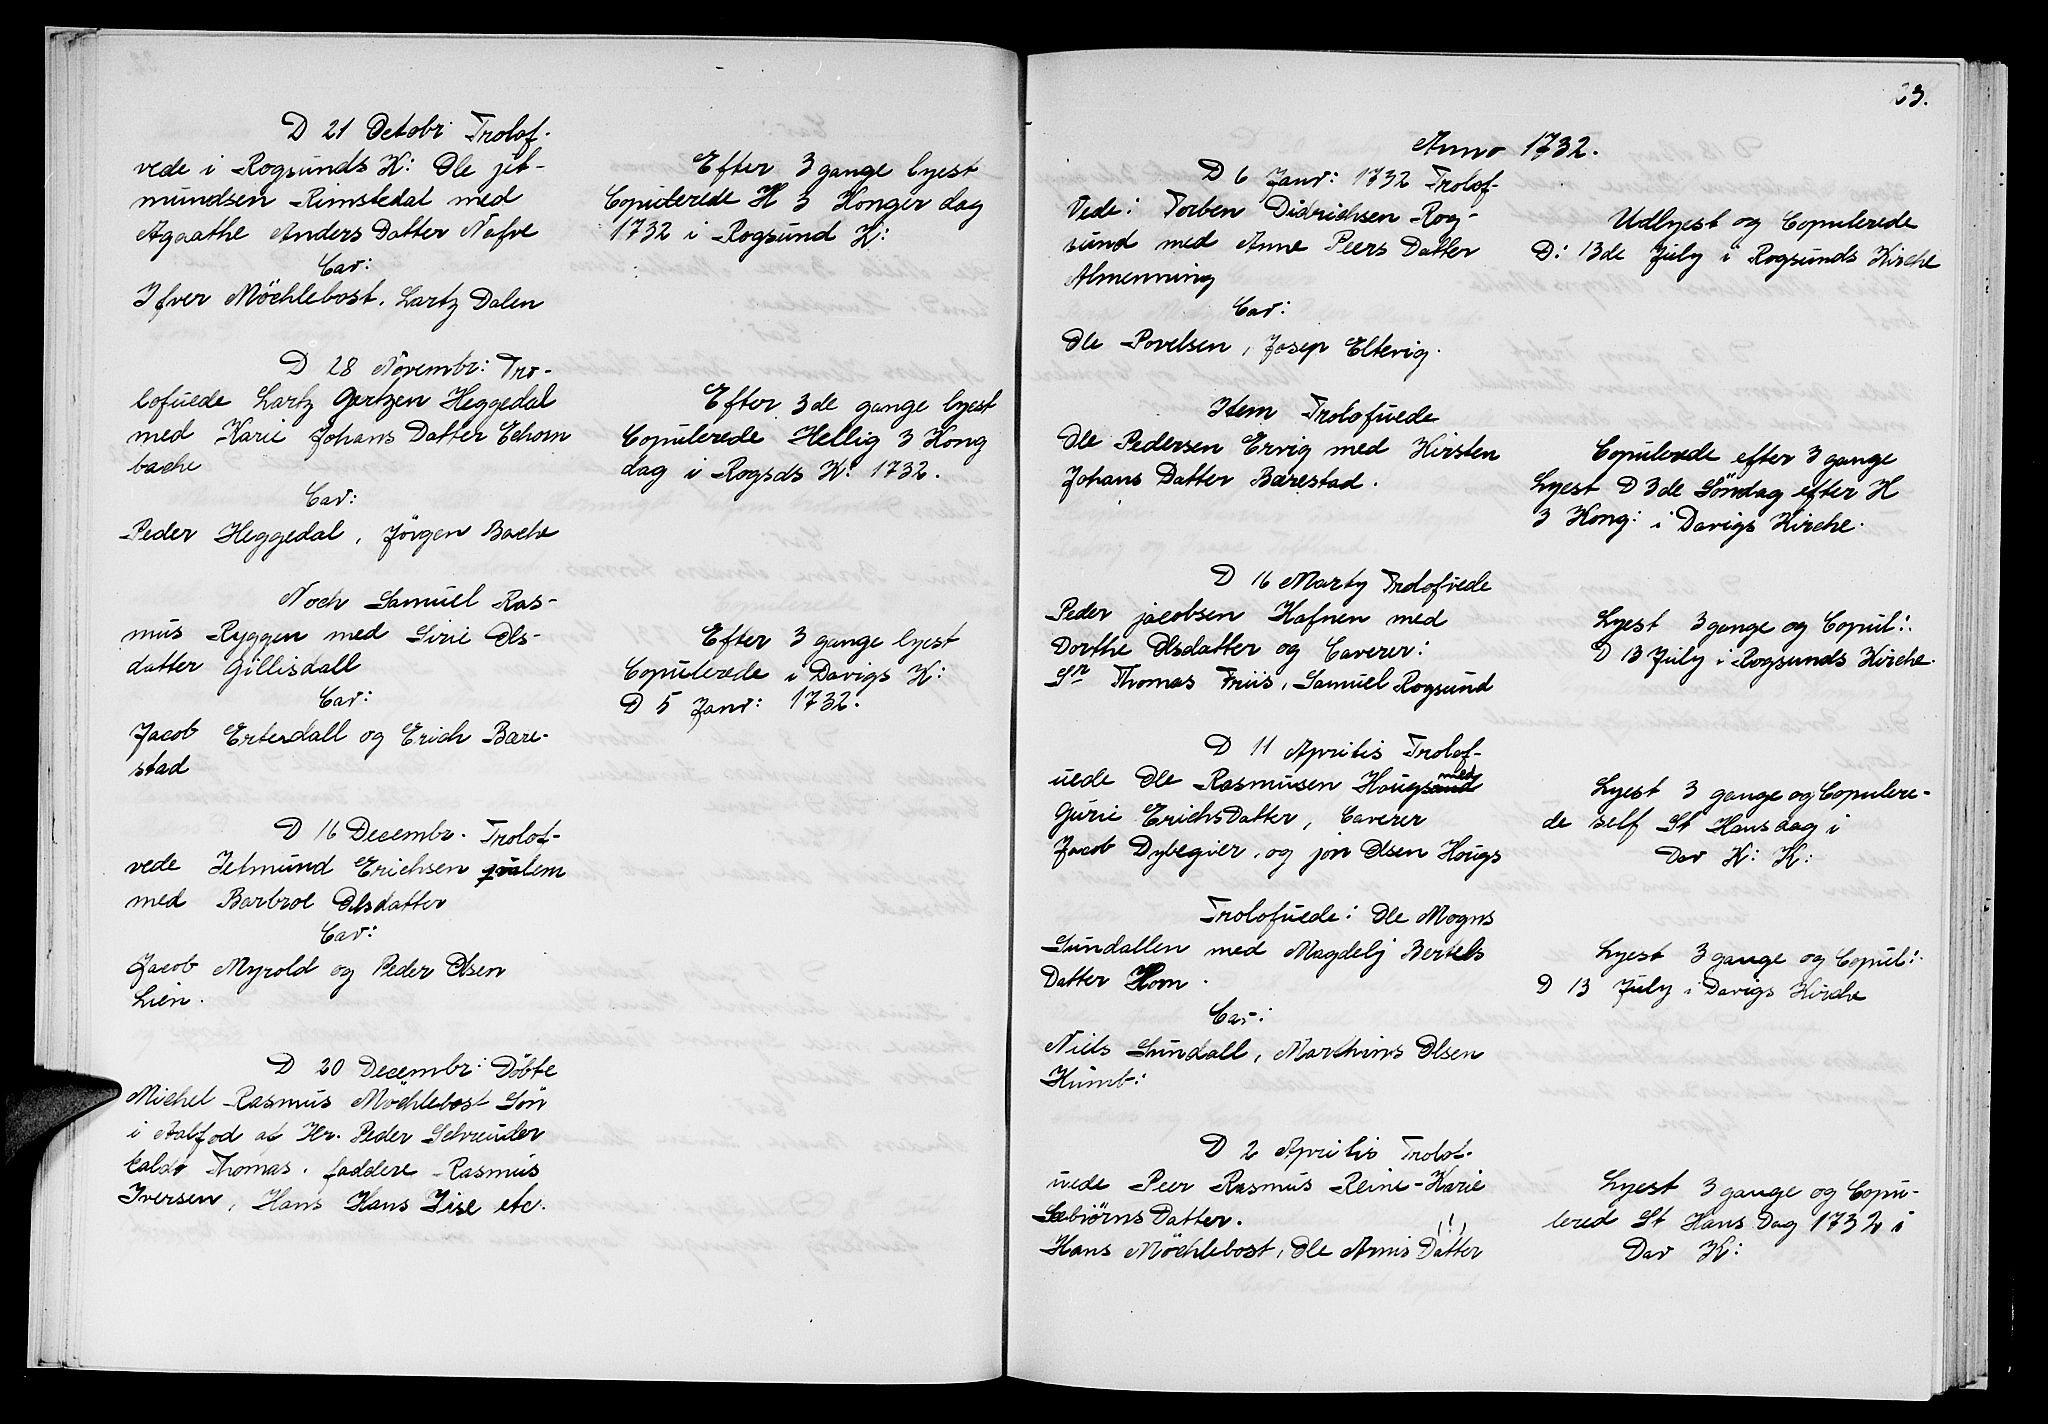 D 21 Octobr Trolof-
vede i Rogsunds K: Ole jet-
mundsen Rimstedal med
Agaathe Anders Datter Nafve
Cav:
Ifver Möchlebost, Lartz Dalen
Efter 3 gange lyest
Copulerede H 3 Konger dag
1732 i Rogsund K:
D 28 Novembr: Tro-
lofuede Lartz Gertzen Heggedal
med Karie Johans Datter Echorn
bache
Cav:
Peder Heggedal, Jörgen Bache
Efter 3de gange lyest
Copulerede Hellig 3 Kong
dag i Rogsds K: 1732.
Noch Samuel Ras-
mus Ryggen med Sirie Ols-
datter Gillisdall
Cav:
Jacob Erterdall og Erich Bære-
stad
Efter 3 gange lyest
Copulerede i Davigs K:
D 5 Janv: 1732.
D 16 Decembr. Trolof-
vede Jetmund Erichsen
med Barbroe Olsdatter
Cav:
Jacob Myrold og Peder Olsen
Lien.
D 20 Decembr: Döbte
Michel Rasmus Möchlebost Sön
i Aalfod af Hr. Peder Schreuder
kaldt Thomas. faddere Rasmus
Iversen, Hans Hans Iise etc.
23.
Anno 1732.
D 6 Janv: 1732 Trolof-
Vede: Torben Didrichsen Rog-
sund med Anne Peers Datter
Almenning
Cav:
Ole Povelsen, Josep Eltevig.
Udlyest og Copulerede
D: 13de July i Rogsunds Kirche
Item Trolofuede
Ole Pedersen Ervig med Kirsten
Johans Datter Bærestad.
Copulerede efter 3 gange
Lyest D 3de Söndag efter H
3 Kong: i Davigs Kirche.
D 16 Marty Trolofvede
Peder jacobsen Hafnen med
Dorthe Olsdatter og Caverer:
Sr Thomas Friis, Samuel Rogsund
Lyest 3 gange og Copul:
D 13 July i Rogsunds Kirche.
D 11 Aprilis Trolof-
uede Ole Rasmusen Hougsund med
Gurie ErichsDatter, Caverer
Jacob Dybegier, og jon Olsen Hougs
Lyest 3 gange og Copulere-
de self St Hansdag i
Dav K: K:
Trolofuede: Ole Mogns
Sundallen med Magdelj Bertels
Datter Horn.
Cav:
Niels Sundall, Marthins Olsen
Humb:
Lyest 3 gange og Copul:
D 13 July i Davigs Kirche
D 2 Aprilis Trolof-
uede Peer Rasmus Reine - Karie
SæbiörnsDatter.
Hans Möchlebost, Ole Arnis Datter (!)
Lyest 3 gange og Copu-
lered St Hans Dag 1732 i
Dav K: